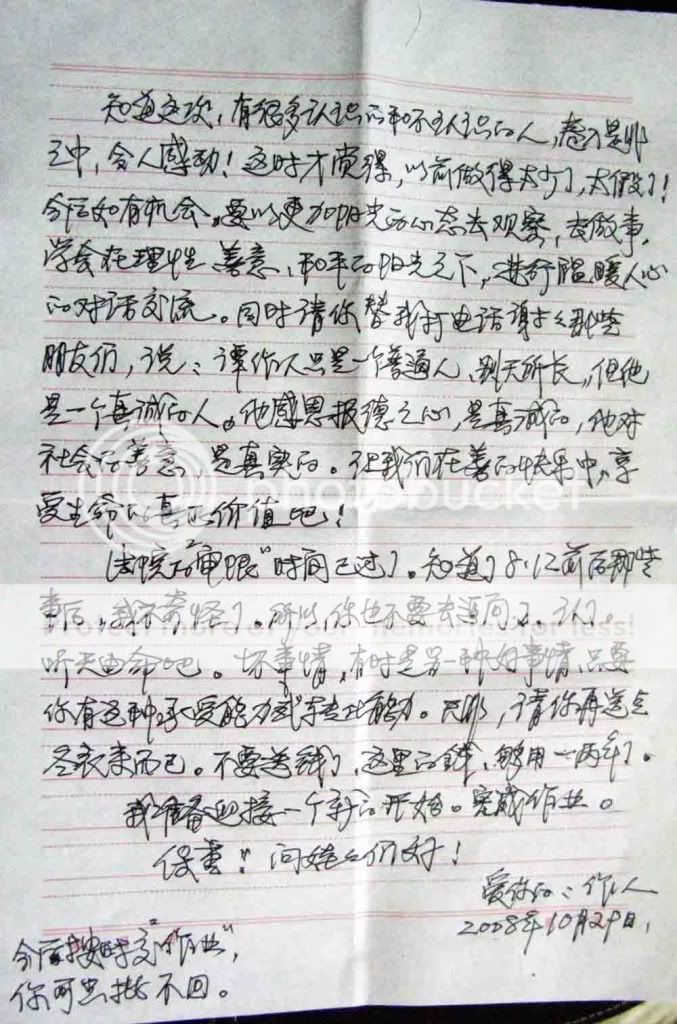 知道这次，有很多认识的和不认识的人，卷入是非
之中，令人感动！这时才觉得，以前做得太少了，太假了！
今后如有机会，要以更加阳光的心态去观察，去做事，
学会在理性、善意、和平的阳光之下，进行温暖人心
的对话交流。同时请你替我打电话谢谢那些
朋友们，说：谭作人只是一个普通人，别无所长，但他
是一个真诚的人。他感恩报德之心，是真诚的，他对
社会行善意，是真实的。让我们在善的快乐中，享
受生命的真正价值吧！
法院的“审限”时间已过了。知道了8·12前后那些
事后，我不奇怪了。所以，你也不要去追问了。认了。
听天由命吧。坏事情，有时是另一种好事情，只要
你有这种承受能力或转化能力。天冷，请你再送点
冬衣来而已。不要送钱了，这里的钱，够用一两年了。
我准备迎接一个新的开始。完成作业。
保重！问娃娃们好！
爱你的：作人
2008年10月29日，
今后按时交“作业”，
你可只批不回。
photobucket
Protect more of your memories for less!